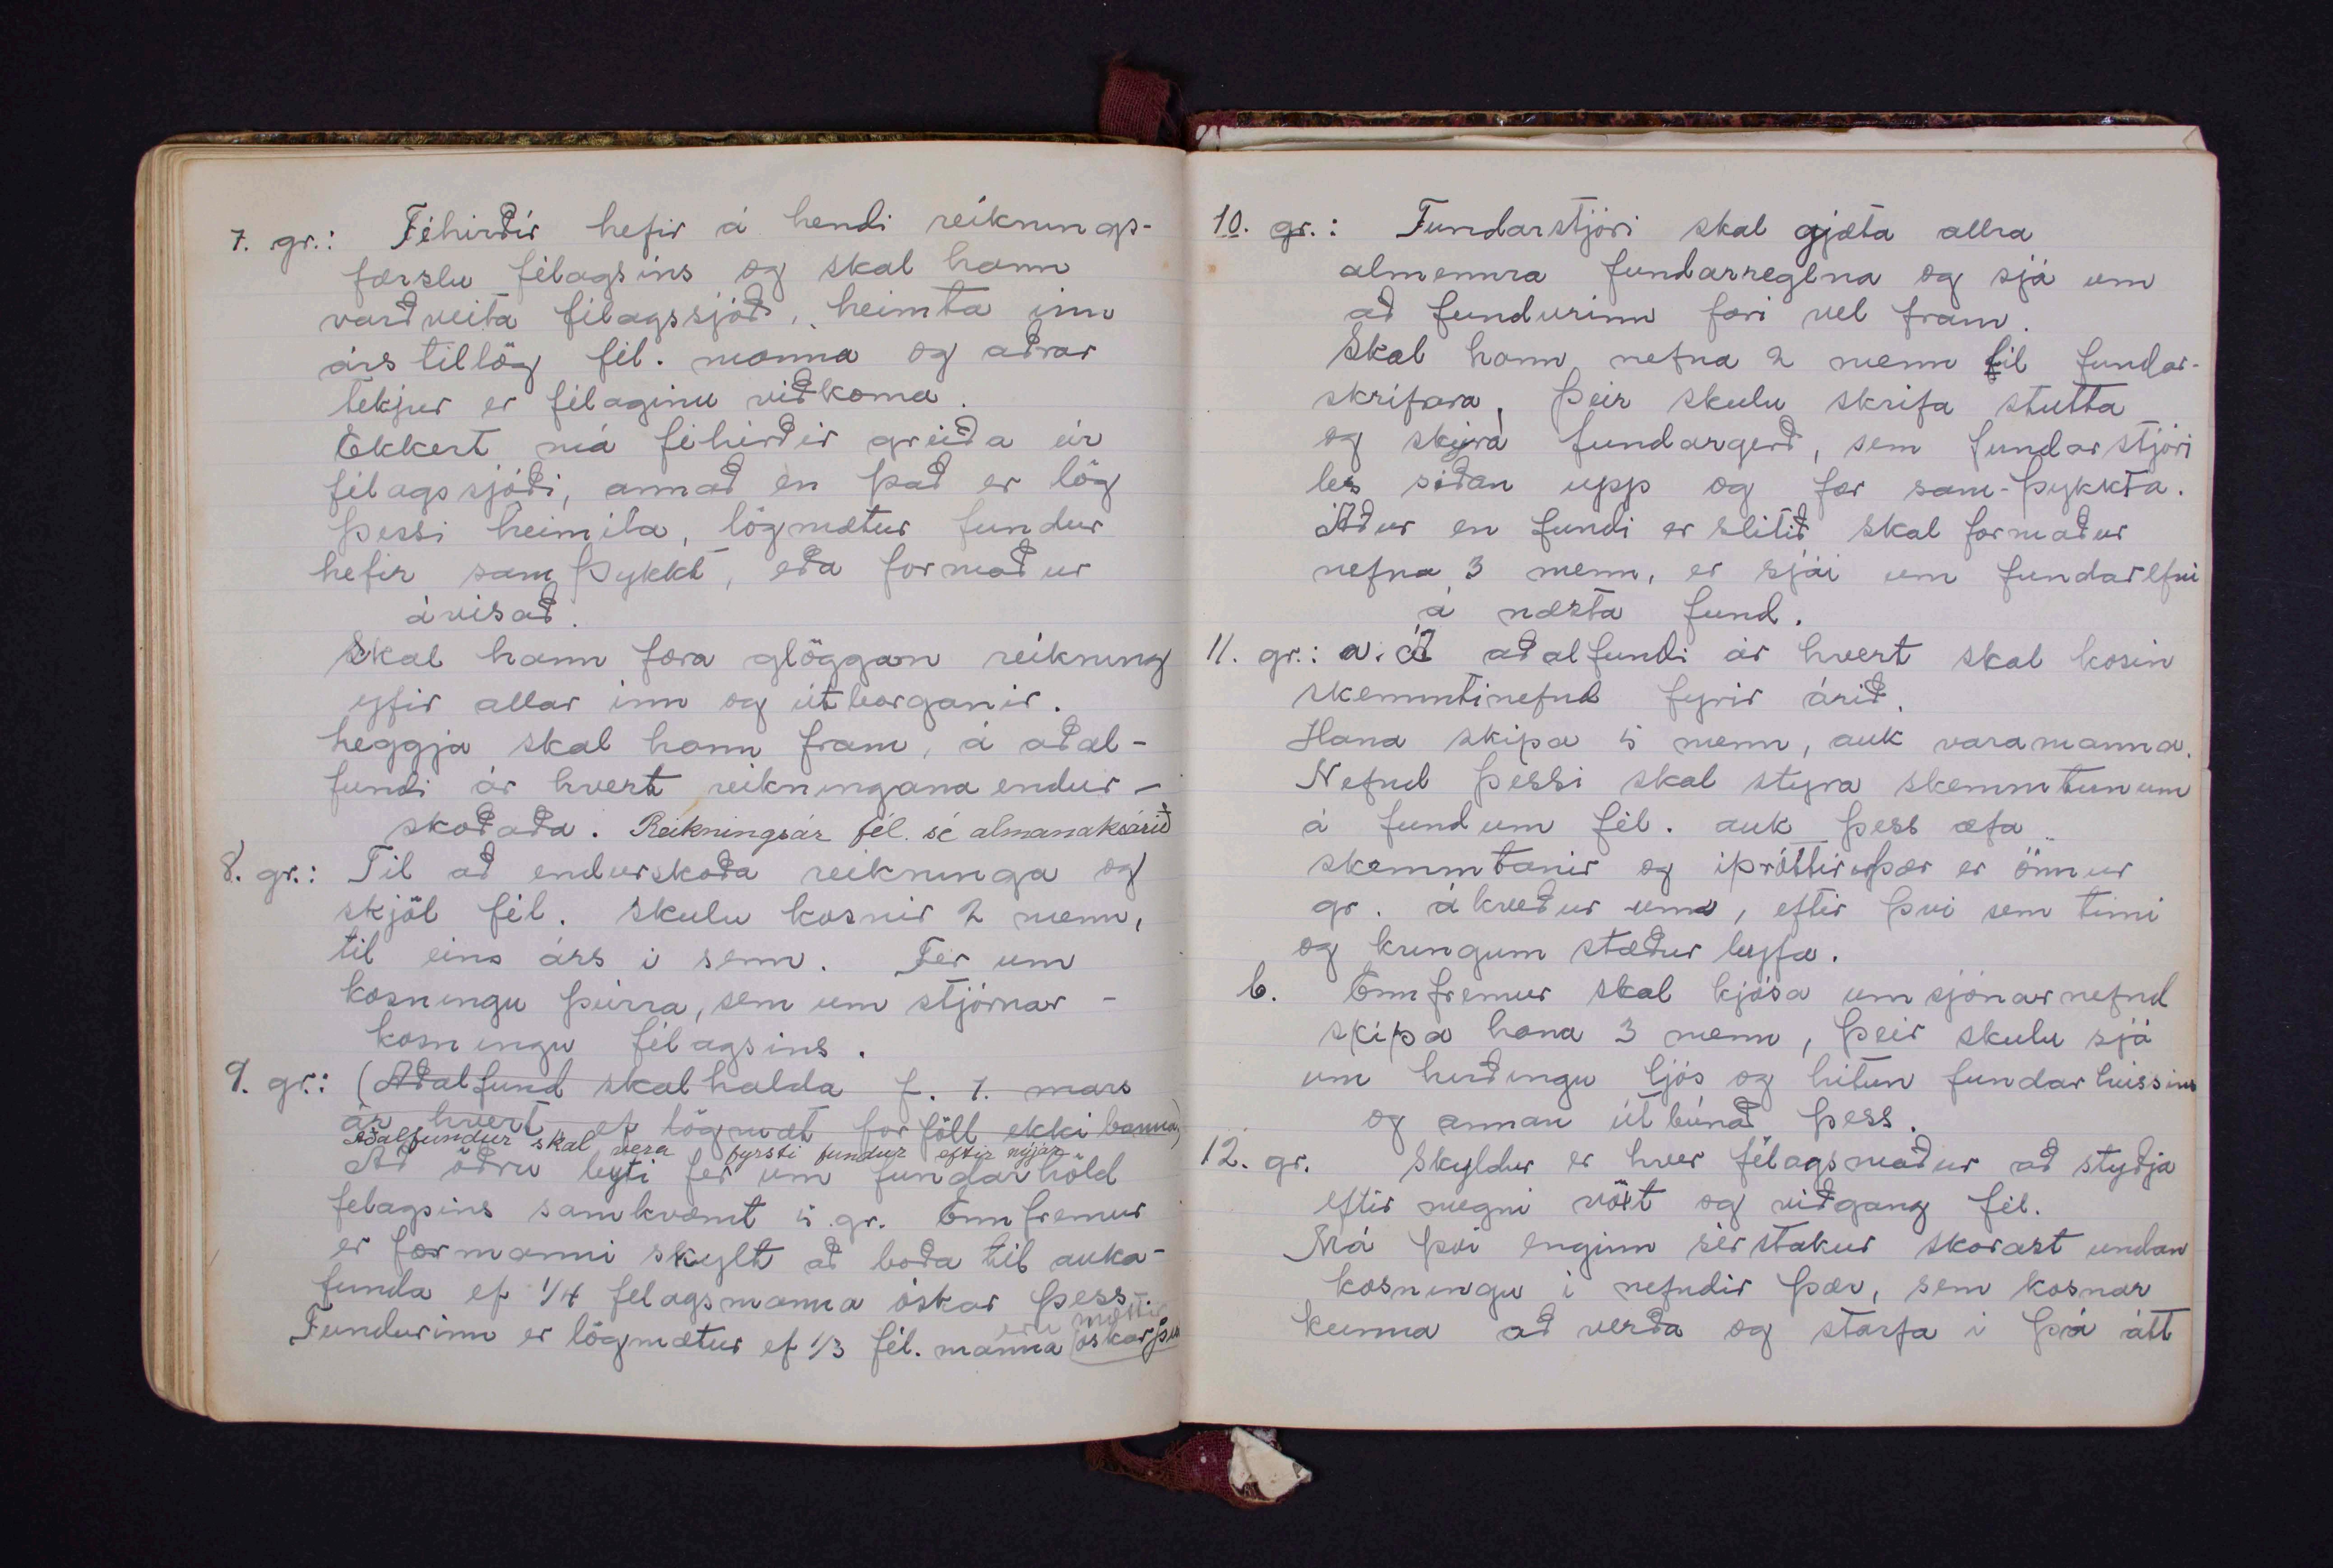 7. gr.: Féhirðir hefir á hendi reiknings-
færslu félagsins og skal hann
varðveita félagssjóð, heimta inn
árs tillög fél. manna og aðrar
tekjur er félaginu viðkoma.
Ekkert má féhirðir greiða úr
félagssjóði, annað en það er lög
þessi heimila, lögmætur fundur
hefir samþykkt, eða formaður
ávísað.
Skal hann færa glöggan reikning
yfir allar inn og útborganir.
Leggja skal hann fram, á aðal-
fundi ár hvert reikningana endur-
skoðaða. Reikningsár fél. sé almanaksárið
8. gr.: Til að endurskoða reikninga og
skjöl fél. skulu kosnir 2 menn,
til eins árs í senn. Fer um
kosningu þeirra, sem um stjórnar-
kosningu félagsins.
9. gr.: (Aðalfund skal halda f. 1. mars
ár hvert ef lögmæt forföll ekki banna)
Aðalfundur skal vera fyrsti fundur eftir nýjár
Að öðru leyti fer um fundarhöld
félagsins samkvæmt 5 gr. Ennfremur
er formanni skylt að boða til auka-
funda ef 1/4 félagsmanna óskar þess.
eru mættir
Fundurinn er lögmætur ef 1/3 fél. manna (óskar þess
10. gr.: Fundarstjóri skal gjæta allra
almennra fundarreglna og sjá um
að fundurinn fari vel fram.
Skal hann nefna 2 menn til fundar-
skrifara, þeir skulu skrifa stutta
og skýra fundargerð, sem fundarstjóri
les síðan upp og fær sam-þykkta.
Áður en fundi er slitið skal formaður
nefna 3 menn, er sjái um fundarefni
á næsta fund.
11. gr.: a. Á aðalfundi ár hvert skal kosin
skemmtinefnd fyrir árið.
Hana skipa 5 menn, auk varamanna.
Nefnd þessi skal styra skemmtunum
á fundum fél. auk þess æfa
skemmtanir og íþróttir þær er önnur
gr. ákveður um, eftir því sem tími
og kringum stæður leyfa.
b. Ennfremur skal kjósa umsjónarnefnd
skipa hana 3 menn, þeir skulu sjá
um hirðingu ljós og hitun fundarhússins
og annan útbúnað þess.
12. gr. Skyldur er hver félagsmaður að styðja
eftir megni vöxt og viðgang fél.
Má því enginn sérstakur skorast undan
kosningu í nefndir þær, sem kosnar
kunna að verða og starfa í þá átt